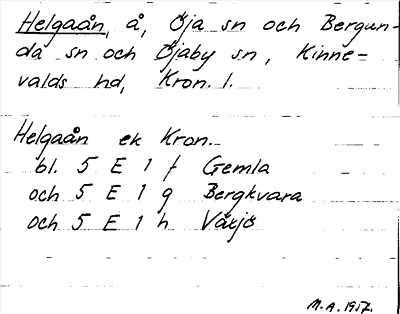 Helgaån, å, Öja sn och Bergun-
da sn och Öjaby sn, Kinne=
valds hd, Kron. l.
Helgaån ek Kron.
bl. 5 E 1 f Gemla
och 5 E 1 g Bergkvara
och 5 E 1 h Växjö
M.A. 1957.